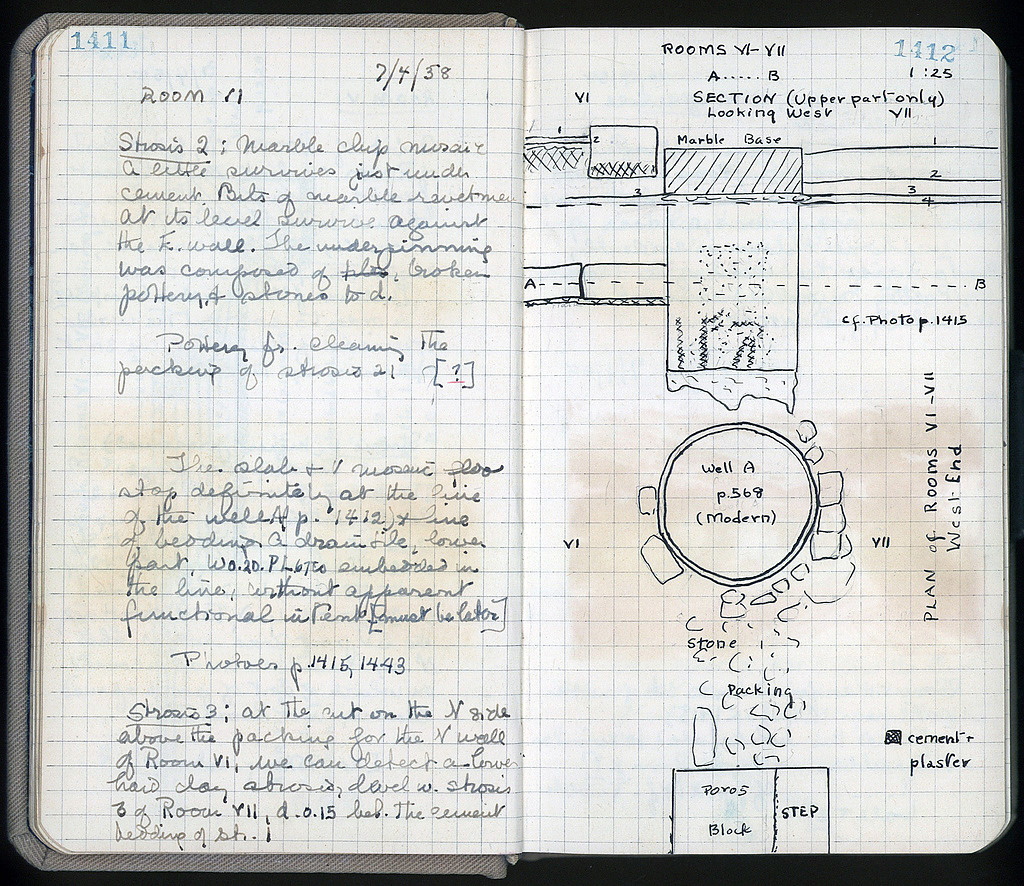 1411
7/4/58
ROOM VI
Strosis 2; Marble chip mosaic
A little survives just under
cement. Bits of marble revetmen
at its level survive against
the E. wall. The underpinning
was composed of broken
pottery, & stones to d.
Pottery fr. cleaning the
packing of strosis 2! [?]
The slab + mosaic floo
stop definitely at the line
of the well A p. 1412) & line
of bedding. A drain tile, lower
part, W 0.20. embedded in
the line, without apparent
functional intent [must be later]
Photoes p. 1415, 1443
Strosis 3; at the cut on the N side
above the packing for the N wall
of Room VI, we can detect a lower
hard clay strosis, level w. strosis
3 of Room VII, d. 0.15 bel. the cement
bedding of str. 1
1412
ROOMS VI-VII
A ..... B
1:25
SECTION (Upper part only)
Looking West
VI
VII
1
2
Marble Base
1
2
3
3
4
A
B
cf. Photo p. 1415
Well A
p. 568
(Modern)
VI
VII
PLAN of ROOMS VI-VII
West End
Stone
Packing
cement +
plaster
Poros
Block
STEP